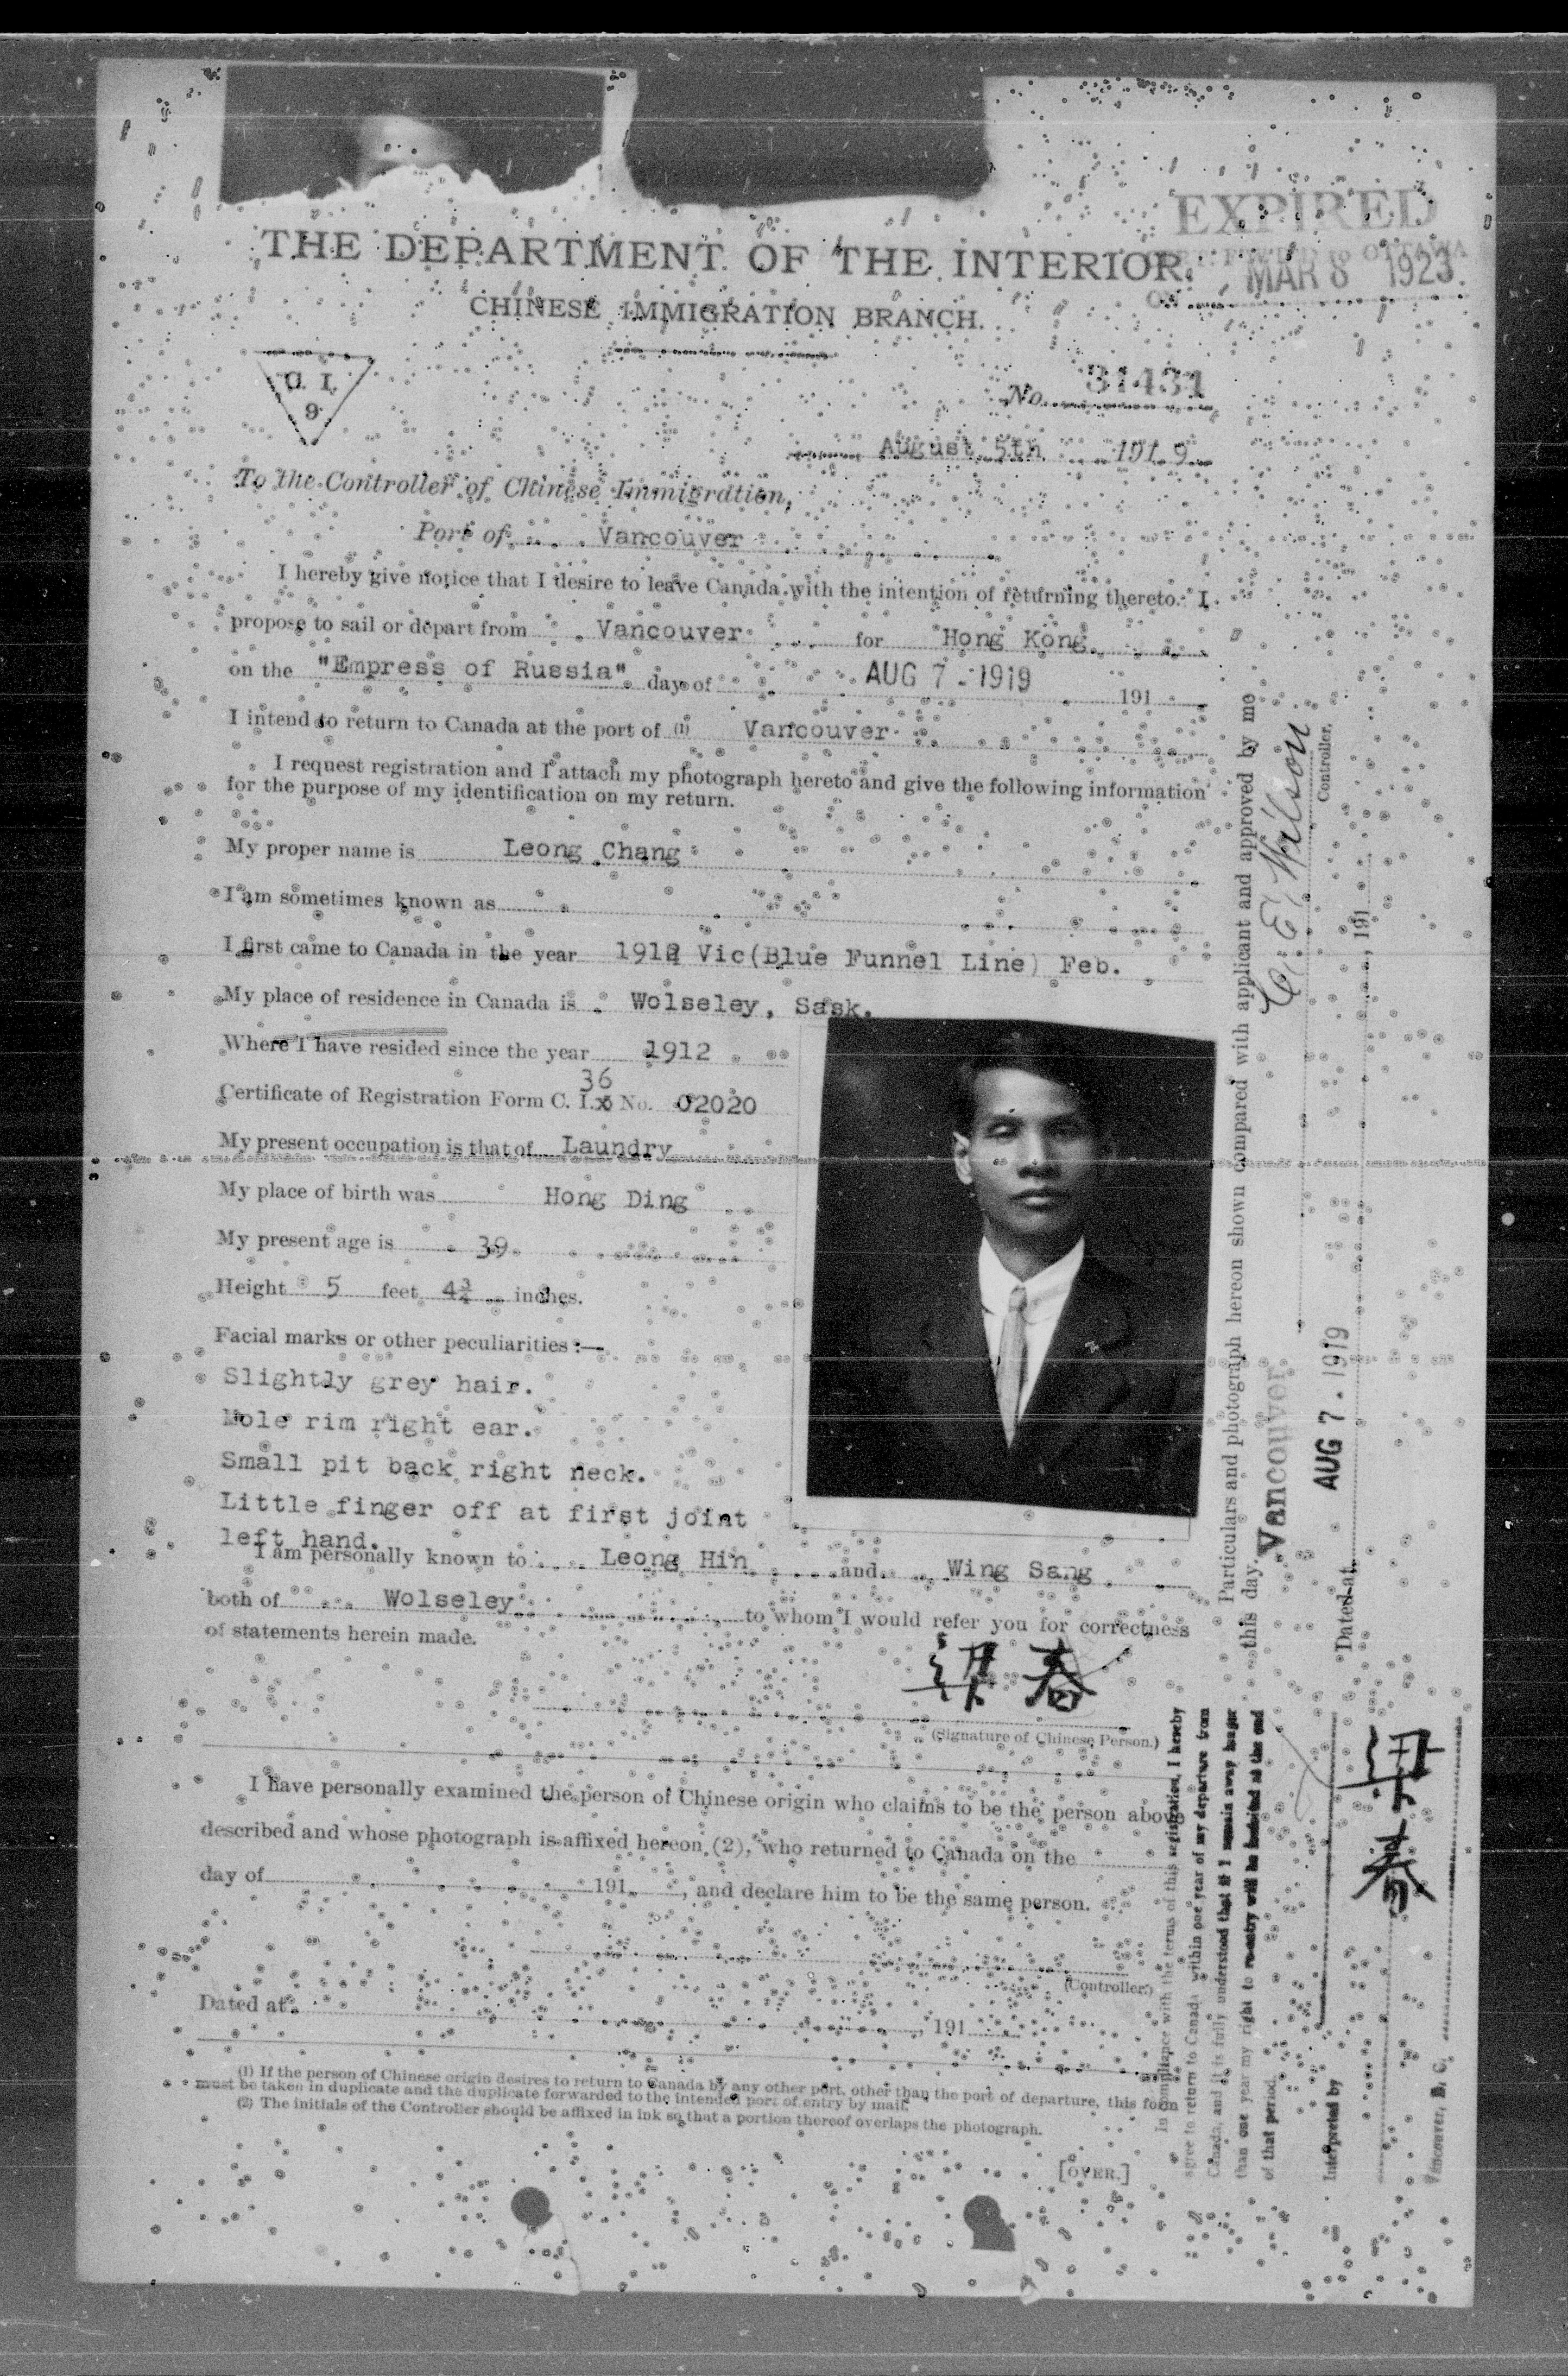 EXPIRED
OTTAWA
MAR 8 1923.
THE DEPARTMENT OF THE INTERIOR.
CHINESE IMMIGRATION BRANCH.
C. I.
9
No. 31431
August 5th 1919
To the Controller of Chinese Immigration,
Port of Vancouver
I hereby give notice that I desire to leave Canada with the intention of returning thereto. I
propose to sail or depart from Vancouver for Hong Kong.
on the "Empress of Russia" day of AUG 7 - 1919 191
I intend to return to Canada at the port of (1) Vancouver
I request registration and I attach my photograph hereto and give the following information
for the purpose of my identification on my return.
My proper name is Leong Chang
I am sometimes known as
I first came to Canada in the year 1912 Vic(Blue Funnel Line) Feb.
My place of residence in Canada is Wolseley, Sask.
Where I have resided since the year 1912
36
Certificate of Registration Form C. I. No. 02020
My present occupation is that of Laundry
My place of birth was Hong Ding
My present age is 39
Height 5 feet 4¾ inches.
Facial marks or other peculiarities :—
Slightly grey hair.
Mole rim right ear.
Small pit back right neck.
Little finger off at first joint
left hand.
I am personally known to Leong Hin and Wing Sang
both of Wolseley to whom I would refer you for correctness
of statements herein made.
梁春
(Signature of Chinese Person.)
I have personally examined the person of Chinese origin who claims to be the person above
described and whose photograph is affixed hereon (2), who returned to Canada on the
day of 191 , and declare him to be the same person.
(Controller.)
Dated at , 191
(1) If the person of Chinese origin desires to return to Canada by any other port, other than the port of departure, this form
must be taken in duplicate and the duplicate forwarded to the intended port of entry by mail.
(2) The initials of the Controller should be affixed in ink so that a portion thereof overlaps the photograph.
[OVER.]
Particulars and photograph hereon shown compared with applicant and approved by me
this day.
C. E. Wilson
Controller.
Vancouver
AUG 7 - 1919
Dated at , 191
In compliance with the terms of this registration, I hereby
agree to return to Canada within one year of my departure from
Canada, and it is fully understood that if I remain away longer
than one year my right to re-entry will be forfeited at the end
of that period.
梁春
Interpreted by
Vancouver, B. C.